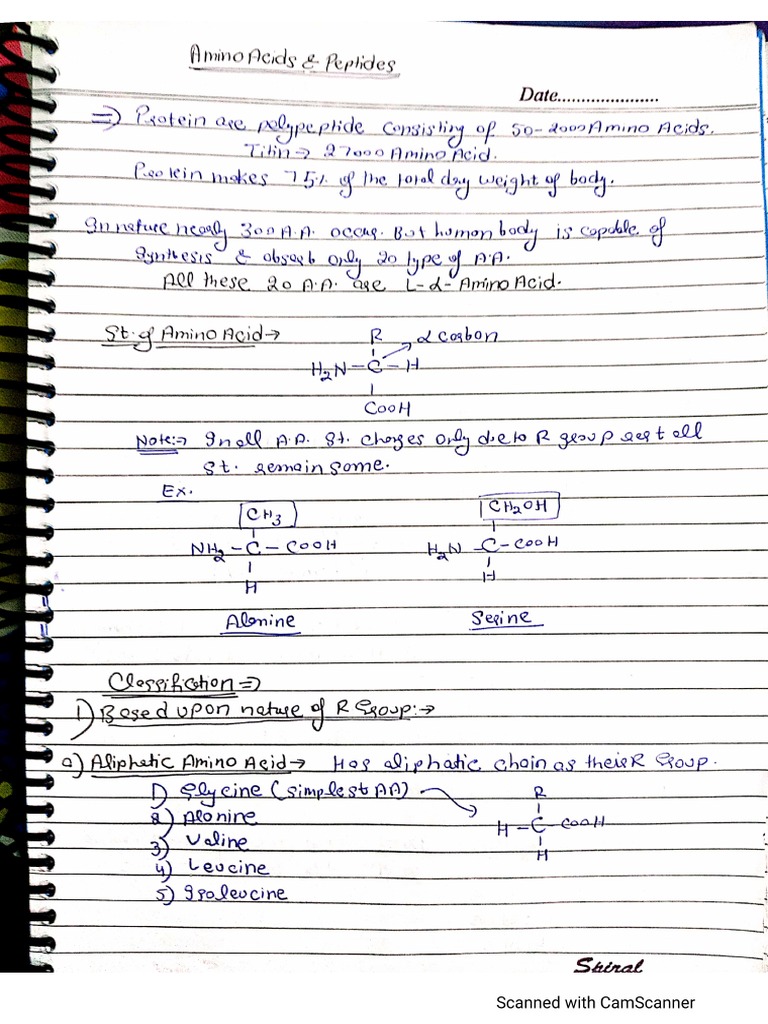 Amino Acids & Peptides
Date.....................
=> Protein are polypeptide consisting of 50-2000 Amino Acids.
Titin → 27000 Amino Acid.
Protein makes 75% of the total dry weight of body.
In nature nearly 300 A.A. occurs. But human body is capable of
Synthesis & absorb only 20 type of A.A.
All these 20 A.A. are L-α-Amino Acid.
St. of Amino Acid →
R → α carbon
H2N-C-H
COOH
Note:→ In all A.A. St. changes only due to R group rest all
St. remain same.
Ex.
CH3 CH2OH
NH2-C-COOH H2N-C-COOH
H H
Alanine Serine
Classification =>
1) Based upon nature of R Group:→
a) Aliphatic Amino Acid → Has aliphatic chain as their R Group.
1) Glycine (simplest AA) R
2) Alanine H-C-COOH
3) Valine H
4) Leucine
5) Isoleucine
Spiral
Scanned with CamScanner